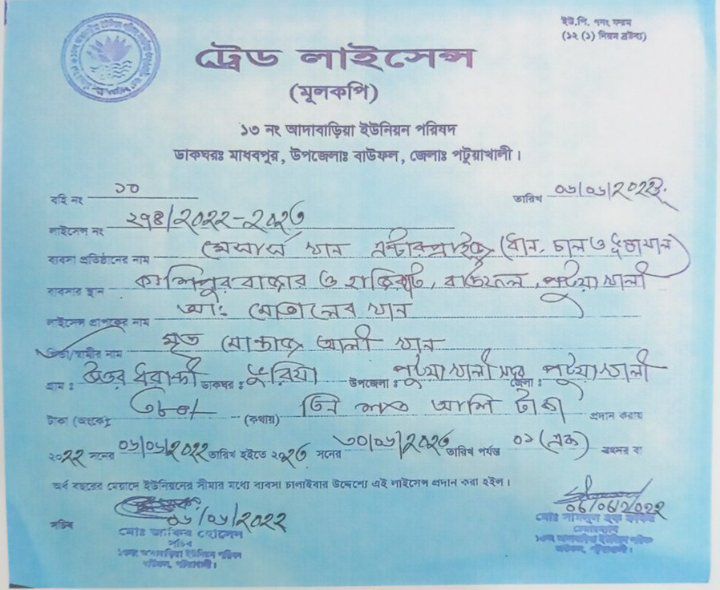 ইউ.পি. গনং ফরম
(১২ (১) নিয়ম দ্রষ্টব্য)
ট্রেড লাইসেন্স
(মূলকপি)
১৩ নং আদাবাড়িয়া ইউনিয়ন পরিষদ
ডাকঘরঃ মাধবপুর, উপজেলাঃ বাউফল, জেলাঃ পটুয়াখালী।
বহি নং ১০ তারিখ ০৬/০৬/২০২২
লাইসেন্স নং ২৭৪/২০২২-২০২৩
ব্যবসা প্রতিষ্ঠানের নাম মেসার্স খান এন্টারপ্রাইজ (ধান, চাল ও
ব্যবসার স্থান কাশিপুর বাজার ও বাউফল, পটুয়াখালী
লাইসেন্স প্রাপকের নাম আঃ মোতালেব খান
পিতা/স্বামীর নাম মৃত মোন্তাজ আলী খান
গ্রাম : উত্তর ধরান্দী ডাকঘর : ভুরিয়া উপজেলা : পটুয়াখালী সদর জেলা : পটুয়াখালী
টাকা (অংকে) ৩৮০/- (কথায়) তিন শত আশি টাকা প্রদান করায়
২০২২ সনের ০৬/০৬/২০২২ তারিখ হইতে ২০২৩ সনের ৩০/০৬/২০২৩ তারিখ পর্যন্ত ০১ (এক) বৎসর বা
অর্ধ বছরের মেয়াদে ইউনিয়নের সীমার মধ্যে ব্যবসা চালাইবার উদ্দেশ্যে এই লাইসেন্স প্রদান করা হইল।
০৬/০৬/২০২২ ০৬/০৬/২০২২
সচিব
মোঃ জাকির হোসেন মোঃ সামসুল হক ফকির
সচিব চেয়ারম্যান
১৩নং আদাবাড়িয়া ইউনিয়ন পরিষদ ১৩নং আদাবাড়িয়া ইউনিয়ন পরিষদ
বাউফল, পটুয়াখালী। বাউফল, পটুয়াখালী।